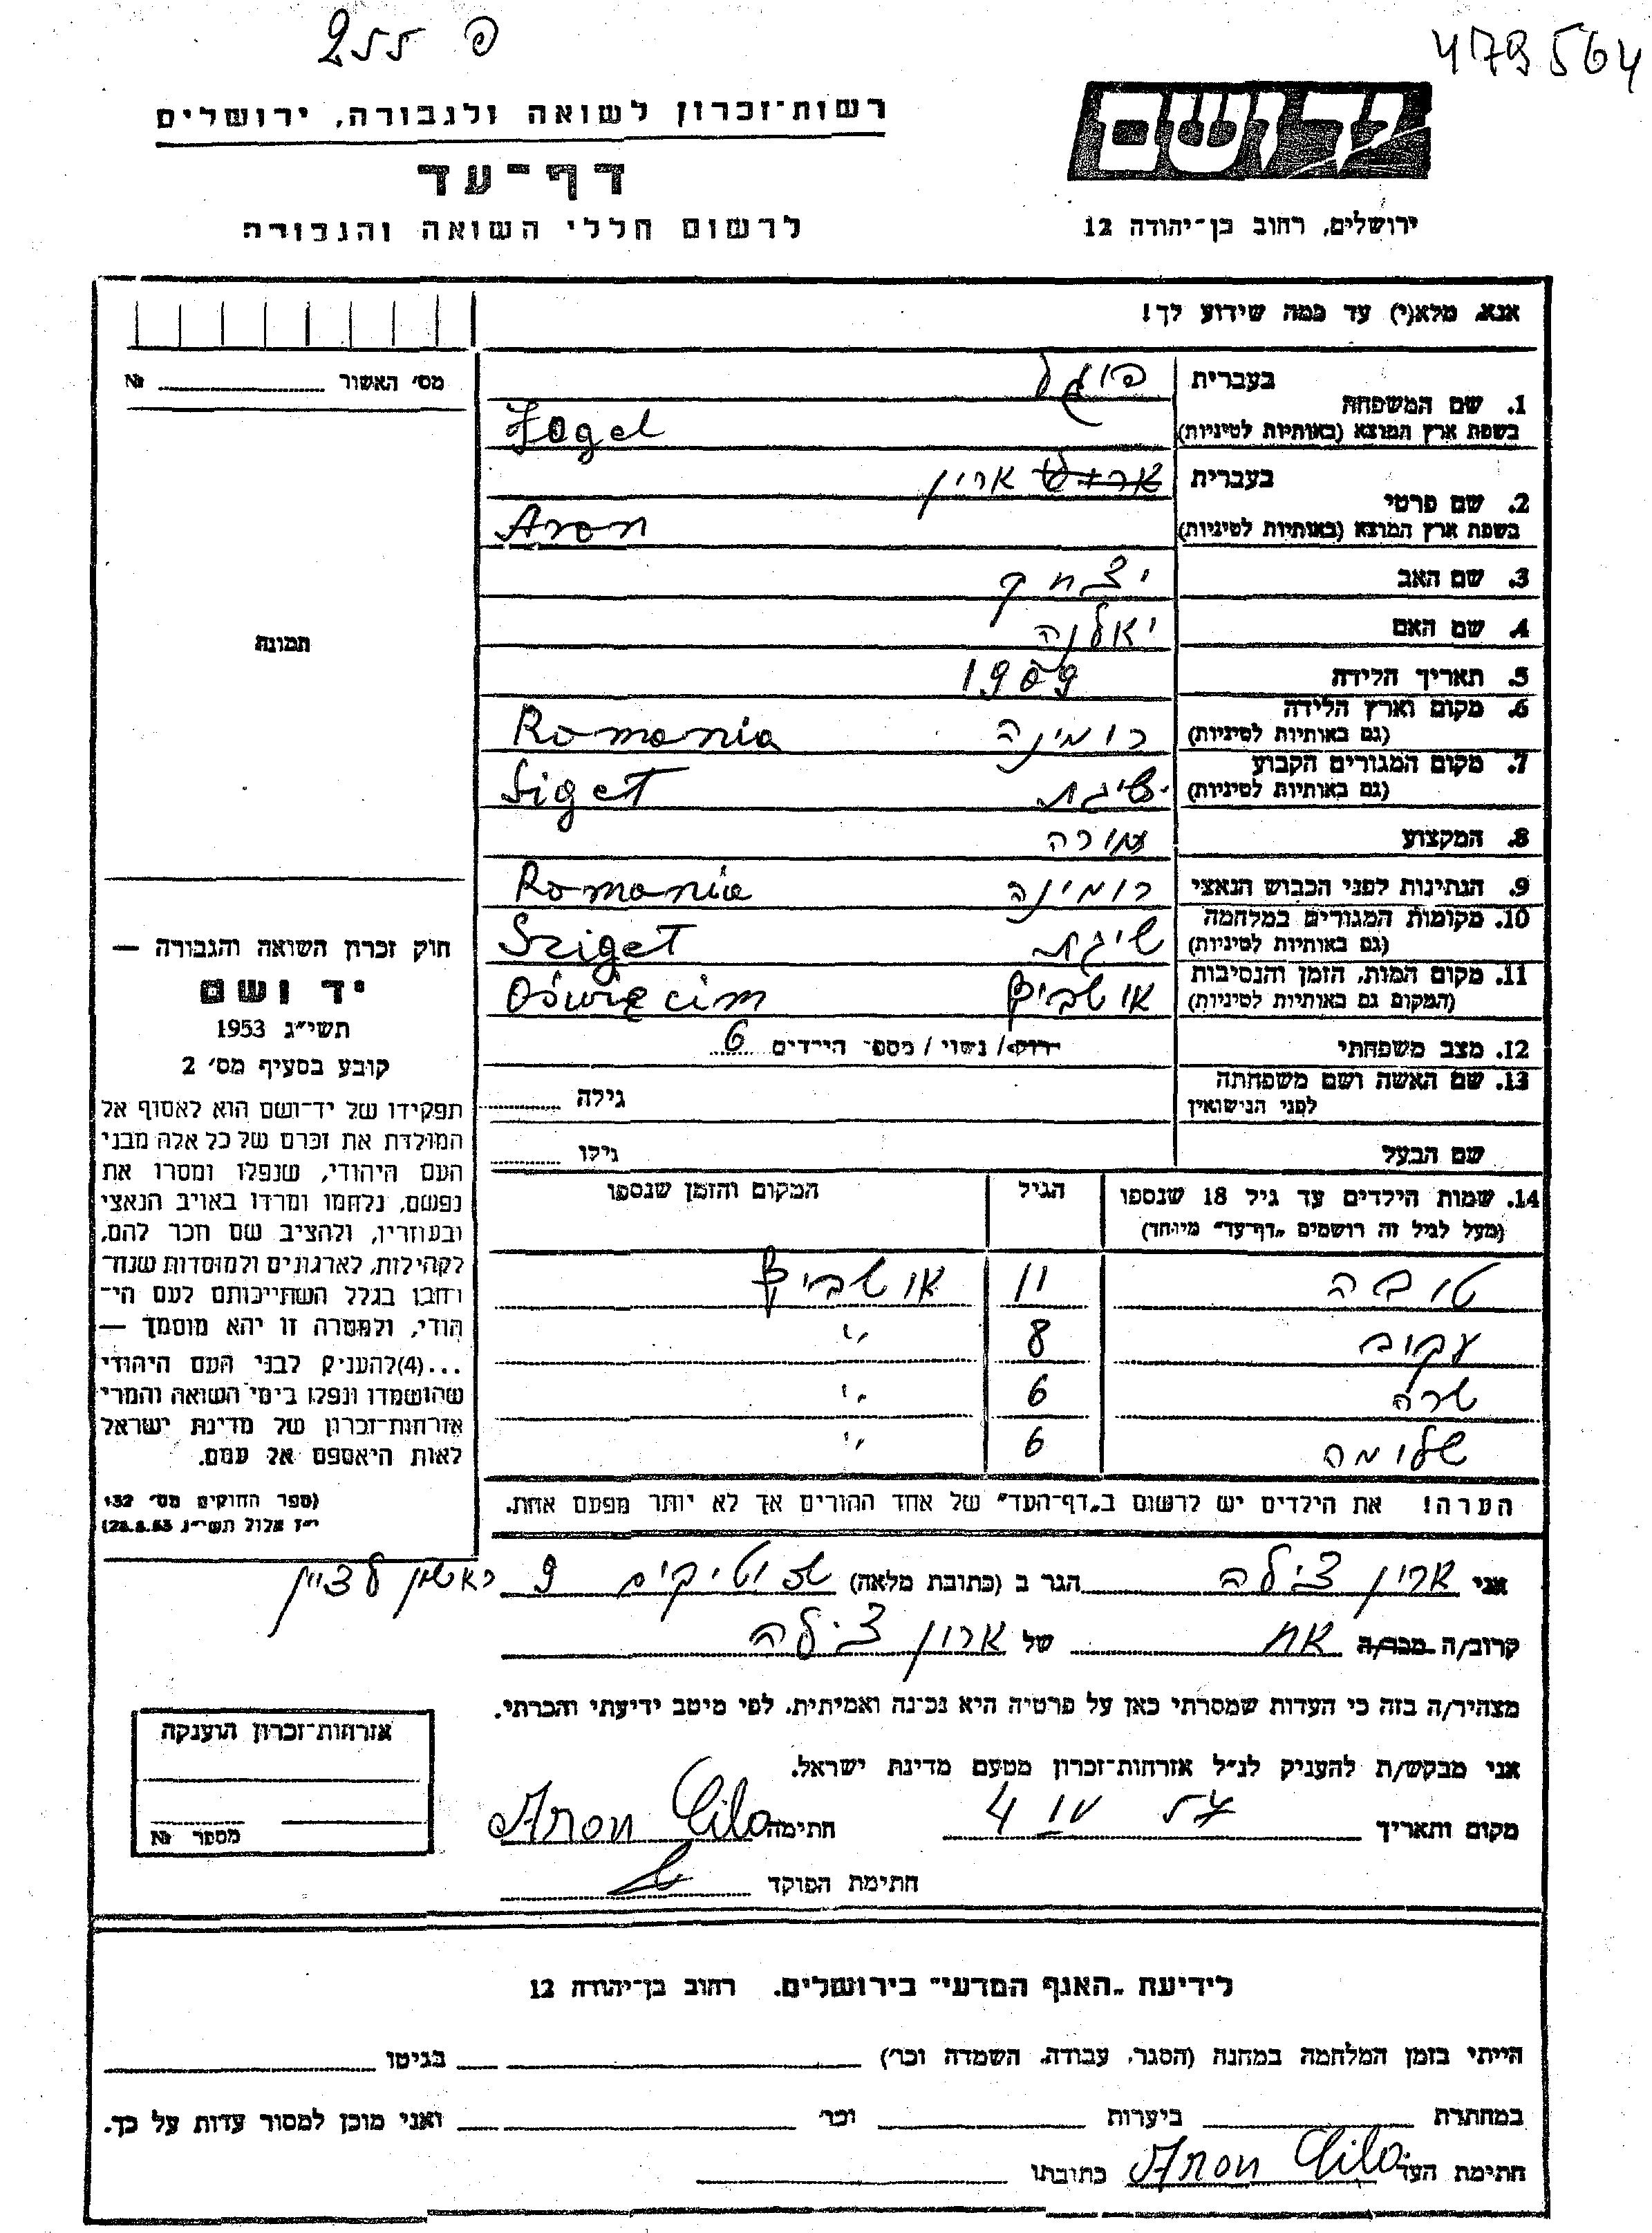 פ 255
479564
רשות־זכרון לשואה ולגבורה, ירושלים
דף־עד
לרשום חללי השואה והגבורה
יד ושם
ירושלים, רחוב בן־יהודה 12
אנא, מלא(י) עד כמה שידוע לך!
מס׳ האשור №
1. שם המשפחה
בעברית פוגל
בשפת ארץ המוצא (באותיות לטיניות) Fogel
2. שם פרטי
בעברית ארון
בשפת ארץ המוצא (באותיות לטיניות) Aron
3. שם האב יצחק
4. שם האם יאלנה
5. תאריך הלידה 1909
6. מקום וארץ הלידה
(גם באותיות לטיניות) רומינה Romania
7. מקום המגורים הקבוע
(גם באותיות לטיניות) שיגת Siget
8. המקצוע מורה
9. הנתינות לפני הכבוש הנאצי רומינה Romania
10. מקומות המגורים במלחמה
(גם באותיות לטיניות) שיגת Sziget
11. מקום המות, הזמן והנסיבות
(המקום גם באותיות לטיניות) אושביץ Oświęcim
12. מצב משפחתי רווק/ נשוי / מספר הילדים 6
13. שם האשה ושם משפחתה
לפני הנישואין גילה
שם הבעל גילו
14. שמות הילדים עד גיל 18 שנספו הגיל המקום והזמן שנספו
(מעל לגיל זה רושמים „דף־עד” מיוחד)
טובה 11 אושביץ
עקוב 8 ״
שרה 6 ״
שלומה 6 ״
הערה! את הילדים יש לרשום ב„דף־העד” של אחד ההורים אך לא יותר מפעם אחת.
תמונה
חוק זכרון השואה והגבורה —
יד ושם
תשי״ג 1953
קובע בסעיף מס׳ 2
תפקידו של יד־ושם הוא לאסוף אל
המולדת את זכרם של כל אלה מבני
העם היהודי, שנפלו ומסרו את
נפשם, נלחמו ומרדו באויב הנאצי
ובעוזריו, ולהציב שם וזכר להם,
לקהילות, לארגונים ולמוסדות שנח־
רחבו בגלל השתייכותם לעם הי־
הודי, ולמטרה זו יהא מוסמך —
...(4)להעניק לבני העם היהודי
שהושמדו ונפלו בימי השואה והמרי
אזרחות־זכרון של מדינת ישראל
לאות היאספם אל עמם.
(ספר החוקים מס׳ 132
י״ז אלול תשי״ג 28.8.53)
אני ארון צילה הגר ב (כתובת מלאה) 9 ראשון לציון
קרוב/ה מכר/ה אח של ארון צילה
מצהיר/ה בזה כי העדות שמסרתי כאן על פרטיה היא נכונה ואמיתית, לפי מיטב ידיעתי והכרתי.
אני מבקש/ת להעניק לנ״ל אזרחות־זכרון מטעם מדינת ישראל.
מקום ותאריך 4 IV 57 חתימה Aron Cila
חתימת הפוקד
אזרחות־זכרון הוענקה
מספר №
לידיעת „האגף המדעי” בירושלים. רחוב בן־יהודה 12
הייתי בזמן המלחמה במחנה (הסגר, עבודה, השמדה וכו׳) בגיטו
במחתרת ביערות וכו׳ ואני מוכן למסור עדות על כך.
חתימת העד Aron Cila כתובתו